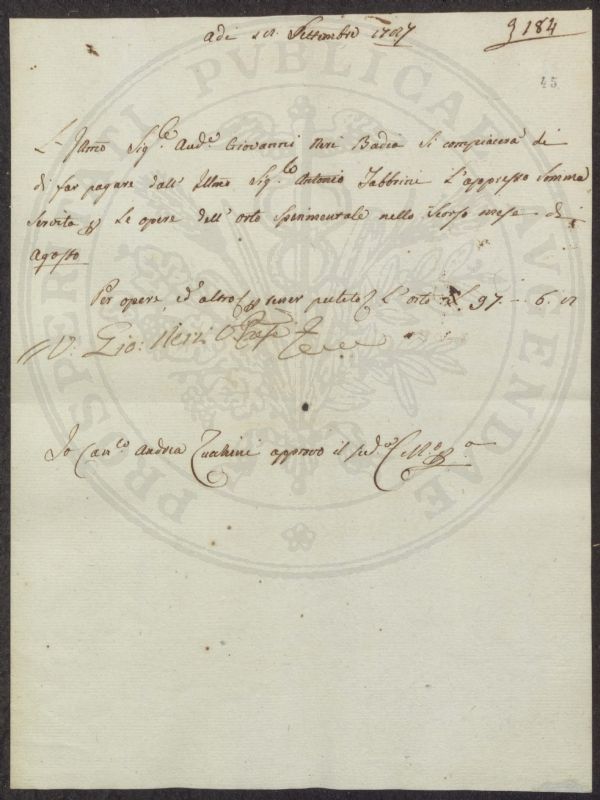 adi Settembre 1787
184
45
L'Illmo Sig.re Aud.e Giovanni Neri Badia si compiacerà di
di far pagare dall'Illmo Sig.re Antonio Fabbrini l'appresso somma
servita p le opere dell'orto sperimentale nello scorso mese di
Agosto
Per opere, ed altro p tener pulito l'orto L. 97. - 6.
V. Gio: Neri
Io Can.co Andrea Zucchini approvo il sud.o
PROSPERITATI PUBLICAE AUGENDAE